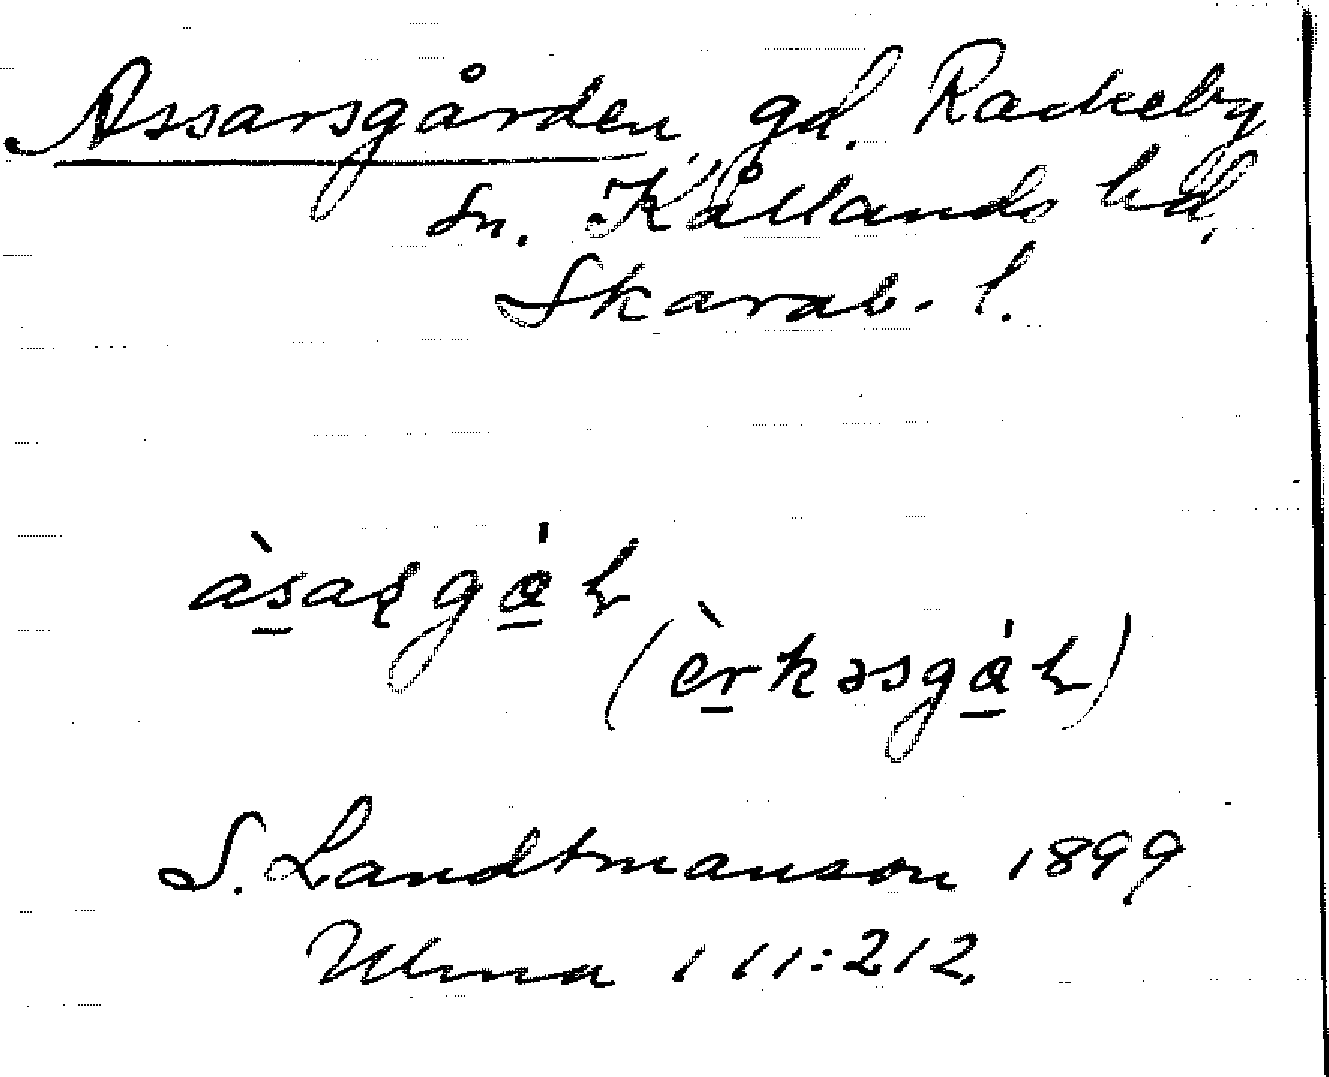 Assarsgården gd. Rackeby
sn. Kållands hd,
Skarab. l.
S. Landtmanson 1899
Ulma 111:212.